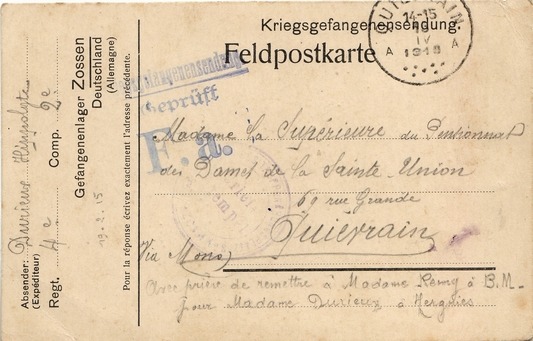 Kriegsgefangenensendung.
Feldpostkarte
14-15
IV
1915
A A
Geprüft
F. a.
Madame la Supérieure du Pensionnat
des Dames de la Sainte-Union
69 rue Grande
Quiévrain
Via Mons
Avec prière de remettre à Madame Rémy à B.M-
pour Madame Durieux à Hergnies
Absender: Durieux Hippolyte
(Expéditeur)
Regt. 4e Comp. 2e
Gefangenenlager Zossen
Deutschland
(Allemagne)
19.2.15
Pour la réponse écrivez exactement l'adresse précédente.